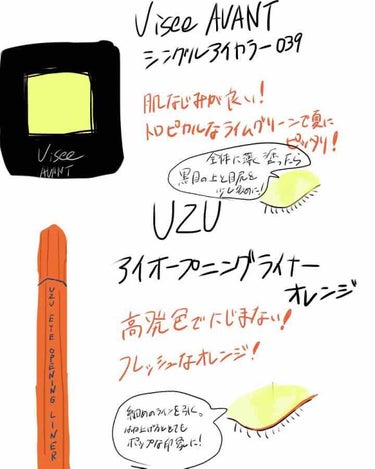 Visee AVANT
シングルアイカラー 039
Visee
AVANT
肌なじみが良い!
トロピカルなライムグリーンで夏に
ピッタリ!
全体に薄く塗ったら
黒目の上と目尻を
少し濃いめに!
UZU
アイオープニングライナー
オレンジ
UZU EYE OPENING LINER
高発色でにじまない!
フレッシュなオレンジ!
細めのラインを引く。
はね上げるととても
ポップな印象に!